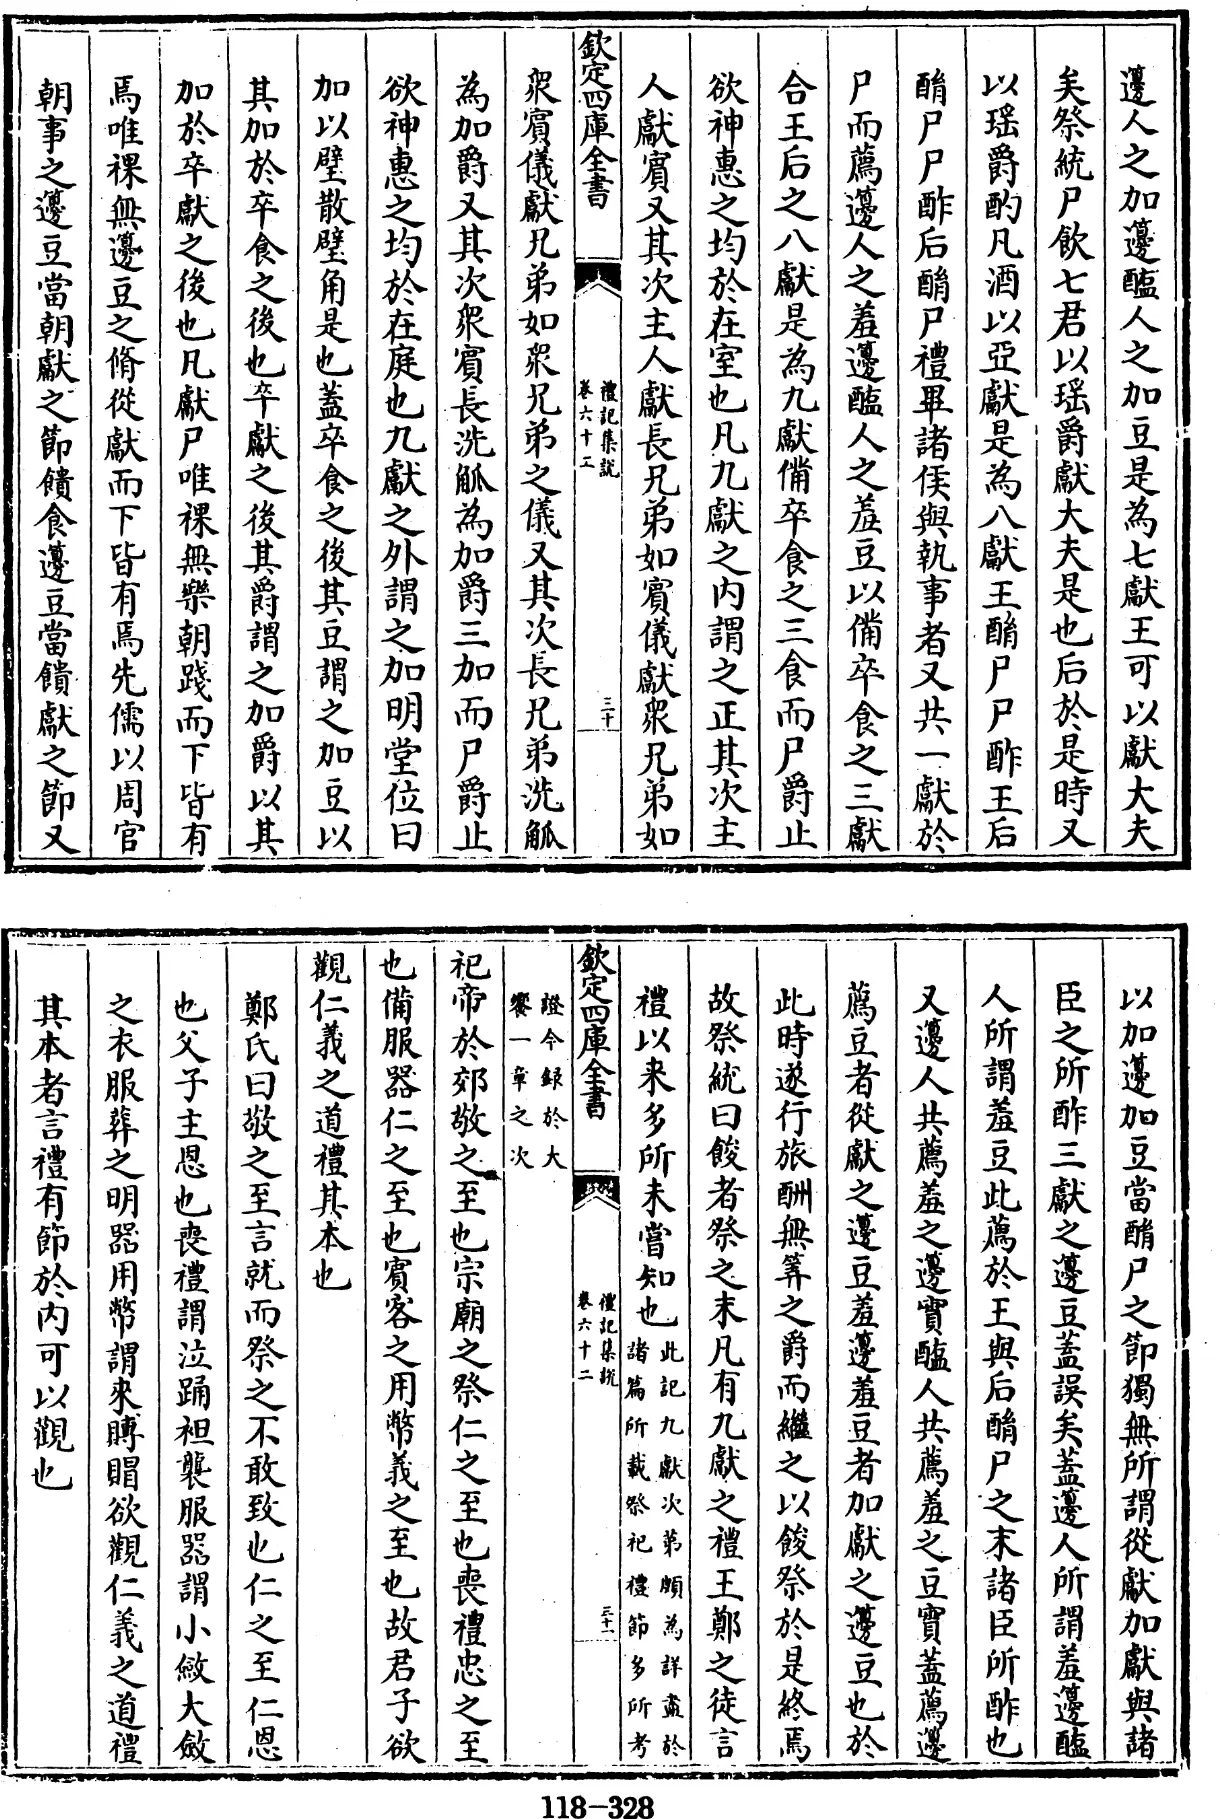 邊人之加籩醢人之加豆是為七獻王可以獻大夫
矣祭統尸飲七君以瑶爵獻大夫是也后於是時又
以瑶爵酌凡酒以亞獻是為八獻王酳尸尸酢王后
酳尸尸酢后酳尸禮畢諸侯與執事者又共一獻於
尸而薦邊人之羞籩醢人之羞豆以備卒食之三獻
合王后之八獻是為九獻備卒食之三食而尸爵止
欲神惠之均於在室也凡九獻之内謂之正其次主
人獻賔又其次主人獻長兄弟如賔儀獻衆兄弟如
欽定四庫全書
禮記集說
卷六十二
三十
衆賔儀獻兄弟如衆兄弟之儀又其次長兄弟洗觚
為加爵又其次衆賔長洗觚為加爵三加而尸爵止
欲神惠之均於在庭也九獻之外謂之加明堂位曰
加以璧散璧角是也蓋卒食之後其豆謂之加豆以
其加於卒食之後也卒獻之後其爵謂之加爵以其
加於卒獻之後也凡獻尸唯祼無樂朝踐而下皆有
焉唯祼無籩豆之脩從獻而下皆有焉先儒以周官
朝事之籩豆當朝獻之節饋食籩豆當饋獻之節又
以加籩加豆當酳尸之節獨無所謂從獻加獻與諸
臣之所酢三獻之籩豆蓋誤矣蓋籩人所謂羞籩醢
人所謂羞豆此薦於王與后酳尸之末諸臣所酢也
又邊人共薦羞之籩實醢人共薦羞之豆實蓋薦籩
薦豆者從獻之籩豆羞籩羞豆者加獻之籩豆也於
此時遂行旅酬無筭之爵而繼之以餕祭於是終焉
故祭統曰餕者祭之末凡有九獻之禮王鄭之徒言
禮以来多所未嘗知也此記九獻次第頗為詳盡於
諸篇所載祭祀禮節多所考
欽定四庫全書
禮記集說
卷六十二
三十一
證今録於大
饗一章之次
祀帝於郊敬之至也宗廟之祭仁之至也喪禮忠之至
也備服器仁之至也賔客之用幣義之至也故君子欲
觀仁義之道禮其本也
鄭氏曰敬之至言就而祭之不敢致也仁之至仁恩
也父子主恩也喪禮謂泣踊袒襲服器謂小斂大斂
之衣服葬之明器用幣謂來賻賵欲觀仁義之道禮
其本者言禮有節於内可以觀也
118-328